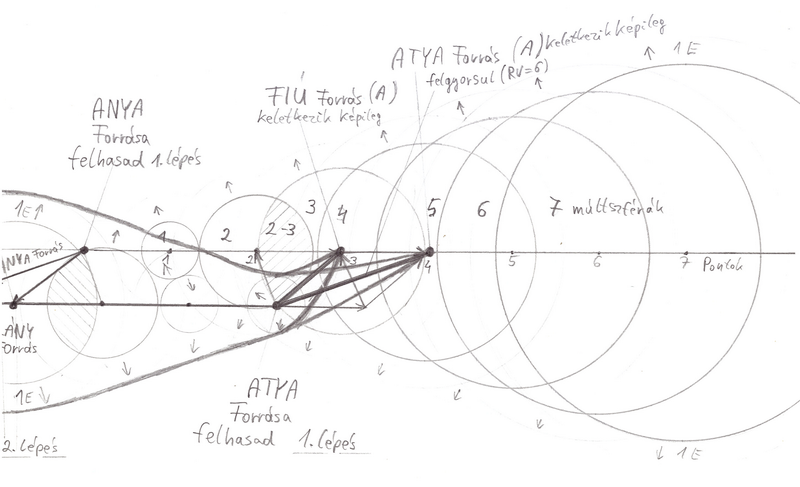 ATYA Forrás (A) keletkezik képileg
felgyorsul (RV=6)
1E
FIÚ Forrás (A)
keletkezik képileg
ANYA
Forrása
felhasad 1. lépés
1E
1
2
2-3
3
4
5
6
7 múltszférák
ANYA Forrás
1
2
3
4
5
6
7 Pontok
ÁNY
Forrás
1E
ATYA
Forrása
felhasad 1. lépés
2. lépés
1E